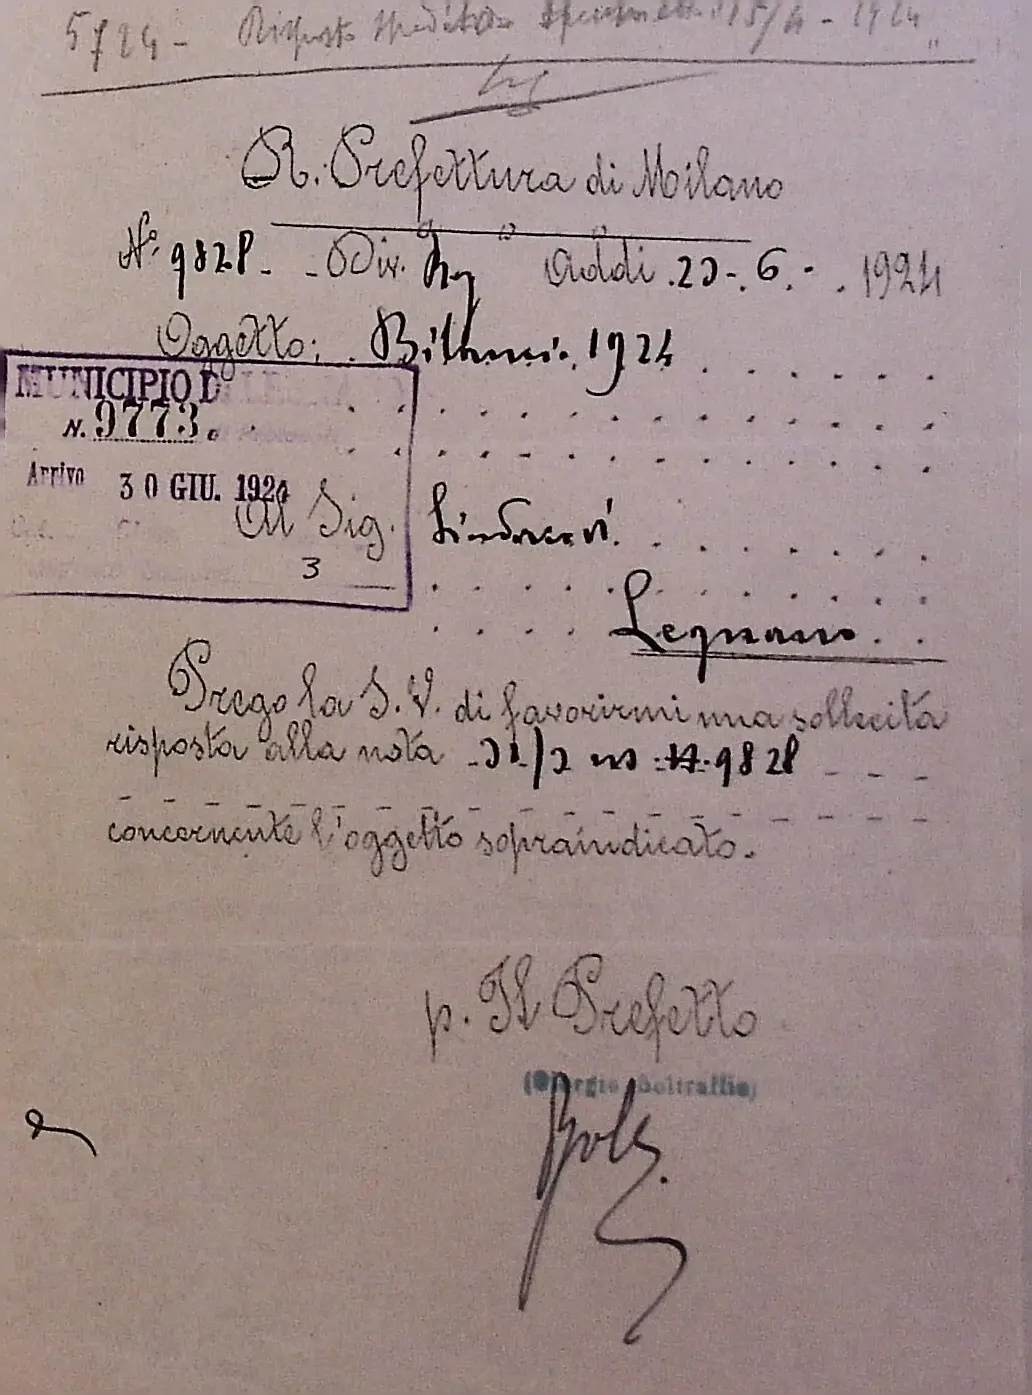 5724 - Risposto spedito 15/4 - 1924
R. Prefettura di Milano
N° 9828 - Div. Addi 20-. 6. - . 1924
Oggetto: Bilanci 1924
MUNICIPIO DI LEGNANO
N. 9773.
Arrivo 30 GIU. 1924
Al Sig. Sindaco di
3
Legnano
Prego la S. V. di favorirmi una sollecita
risposta alla nota N. 9828
concernente l'oggetto sopraindicato.
p. Il Prefetto
(Giorgio Boltraffio)